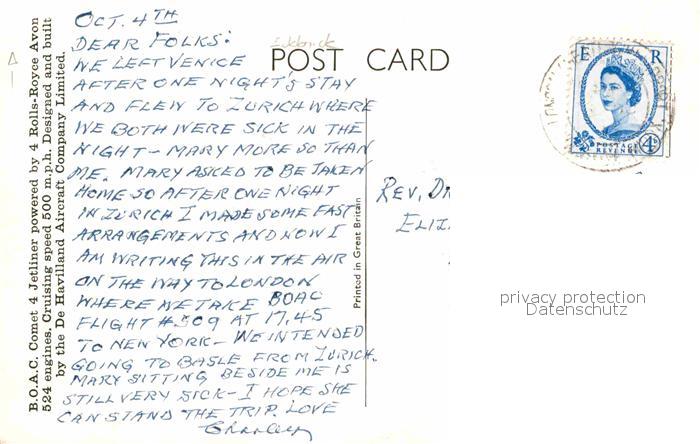 OCT. 4TH
DEAR FOLKS:
WE LEFT VENICE
AFTER ONE NIGHT'S STAY
AND FLEW TO ZURICH WHERE
WE BOTH WERE SICK IN THE
NIGHT - MARY MORE SO THAN
ME. MARY ASKED TO BE TAKEN
HOME SO AFTER ONE NIGHT
IN ZURICH I MADE SOME FAST
ARRANGEMENTS AND NOW I
AM WRITING THIS IN THE AIR
ON THE WAY TO LONDON
WHERE WE TAKE BOAC
FLIGHT #509 AT 17.45
TO NEW YORK - WE INTENDED
GOING TO BASLE FROM ZURICH.
MARY SITTING BESIDE ME IS
STILL VERY SICK - I HOPE SHE
CAN STAND THE TRIP. LOVE
Charley
B.O.A.C. Comet 4 Jetliner powered by 4 Rolls-Royce Avon
524 engines. Cruising speed 500 m.p.h. Designed and built
by the De Havilland Aircraft Company Limited.
POST CARD
Printed in Great Britain
E R
POSTAGE
REVENUE
4D
REV. DR
ELIZ
privacy protection
Datenschutz